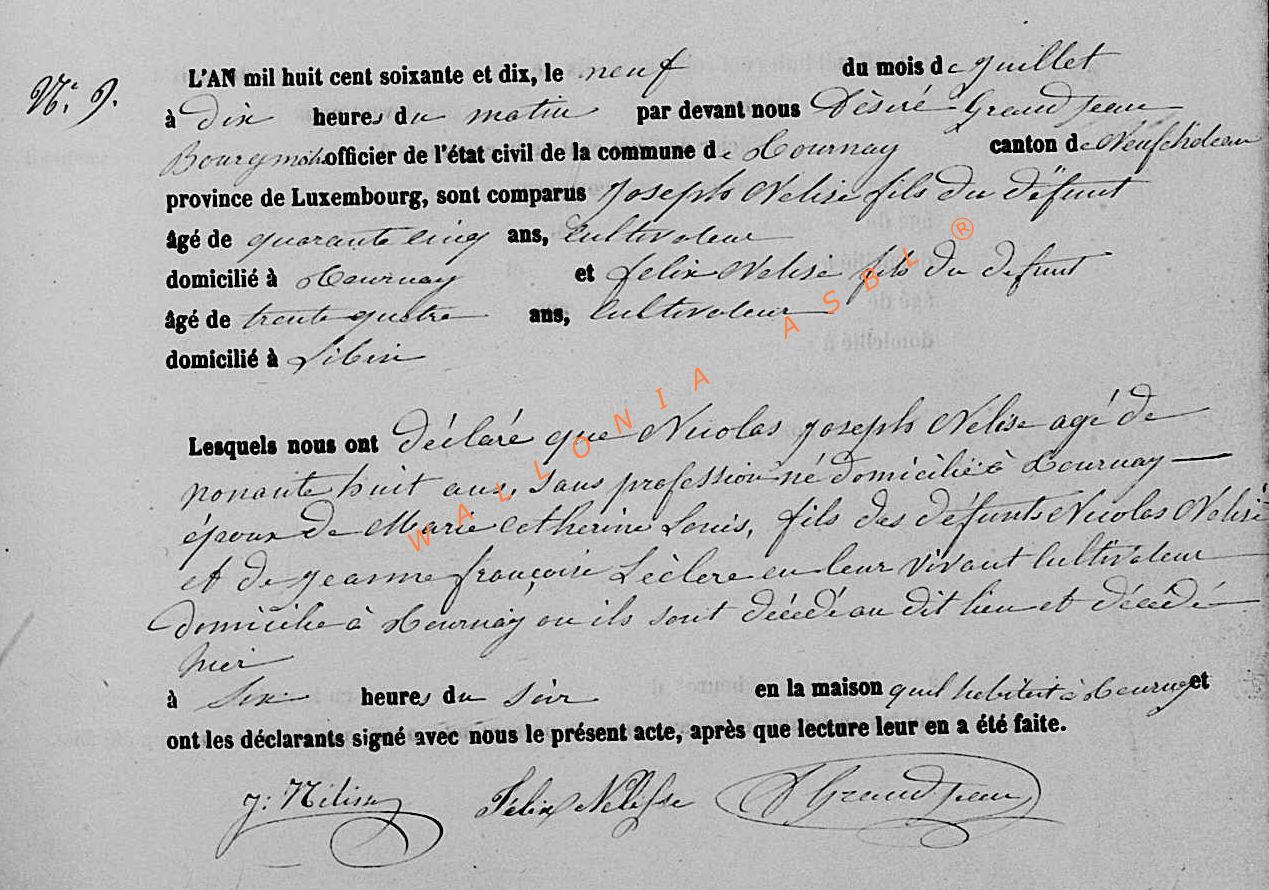 N° 9.
L'AN mil huit cent soixante et dix, le neuf du mois de juillet
à dix heures du matin par devant nous Désiré Grandjean
Bourgmestre officier de l'état civil de la commune de Tournay canton de Neufchateau
province de Luxembourg, sont comparus Joseph Nelisse fils du défunt
âgé de quarante cinq ans, Cultivateur
domicilié à Tournay et Felix Nelisse fils du defunt
âgé de trente quatre ans, Cultivateur
domicilié à Libin
Lesquels nous ont déclaré que Nicolas Joseph Nelisse agé de
nonante huit ans, sans profession né domicilié à Tournay
époux de Marie Catherine Louis, fils des défunts Nicolas Nelisse
et de Jeanne françoise Leclere en leur vivant Cultivateur
domicilie à Tournay ou ils sont décédé au dit lieu et décédé
hier
à six heures du soir en la maison quil habitait à Tournay et
ont les déclarants signé avec nous le présent acte, après que lecture leur en a été faite.
J: Nélisse Félix Nelisse D Grandjean
WALLONIA ASBL ®